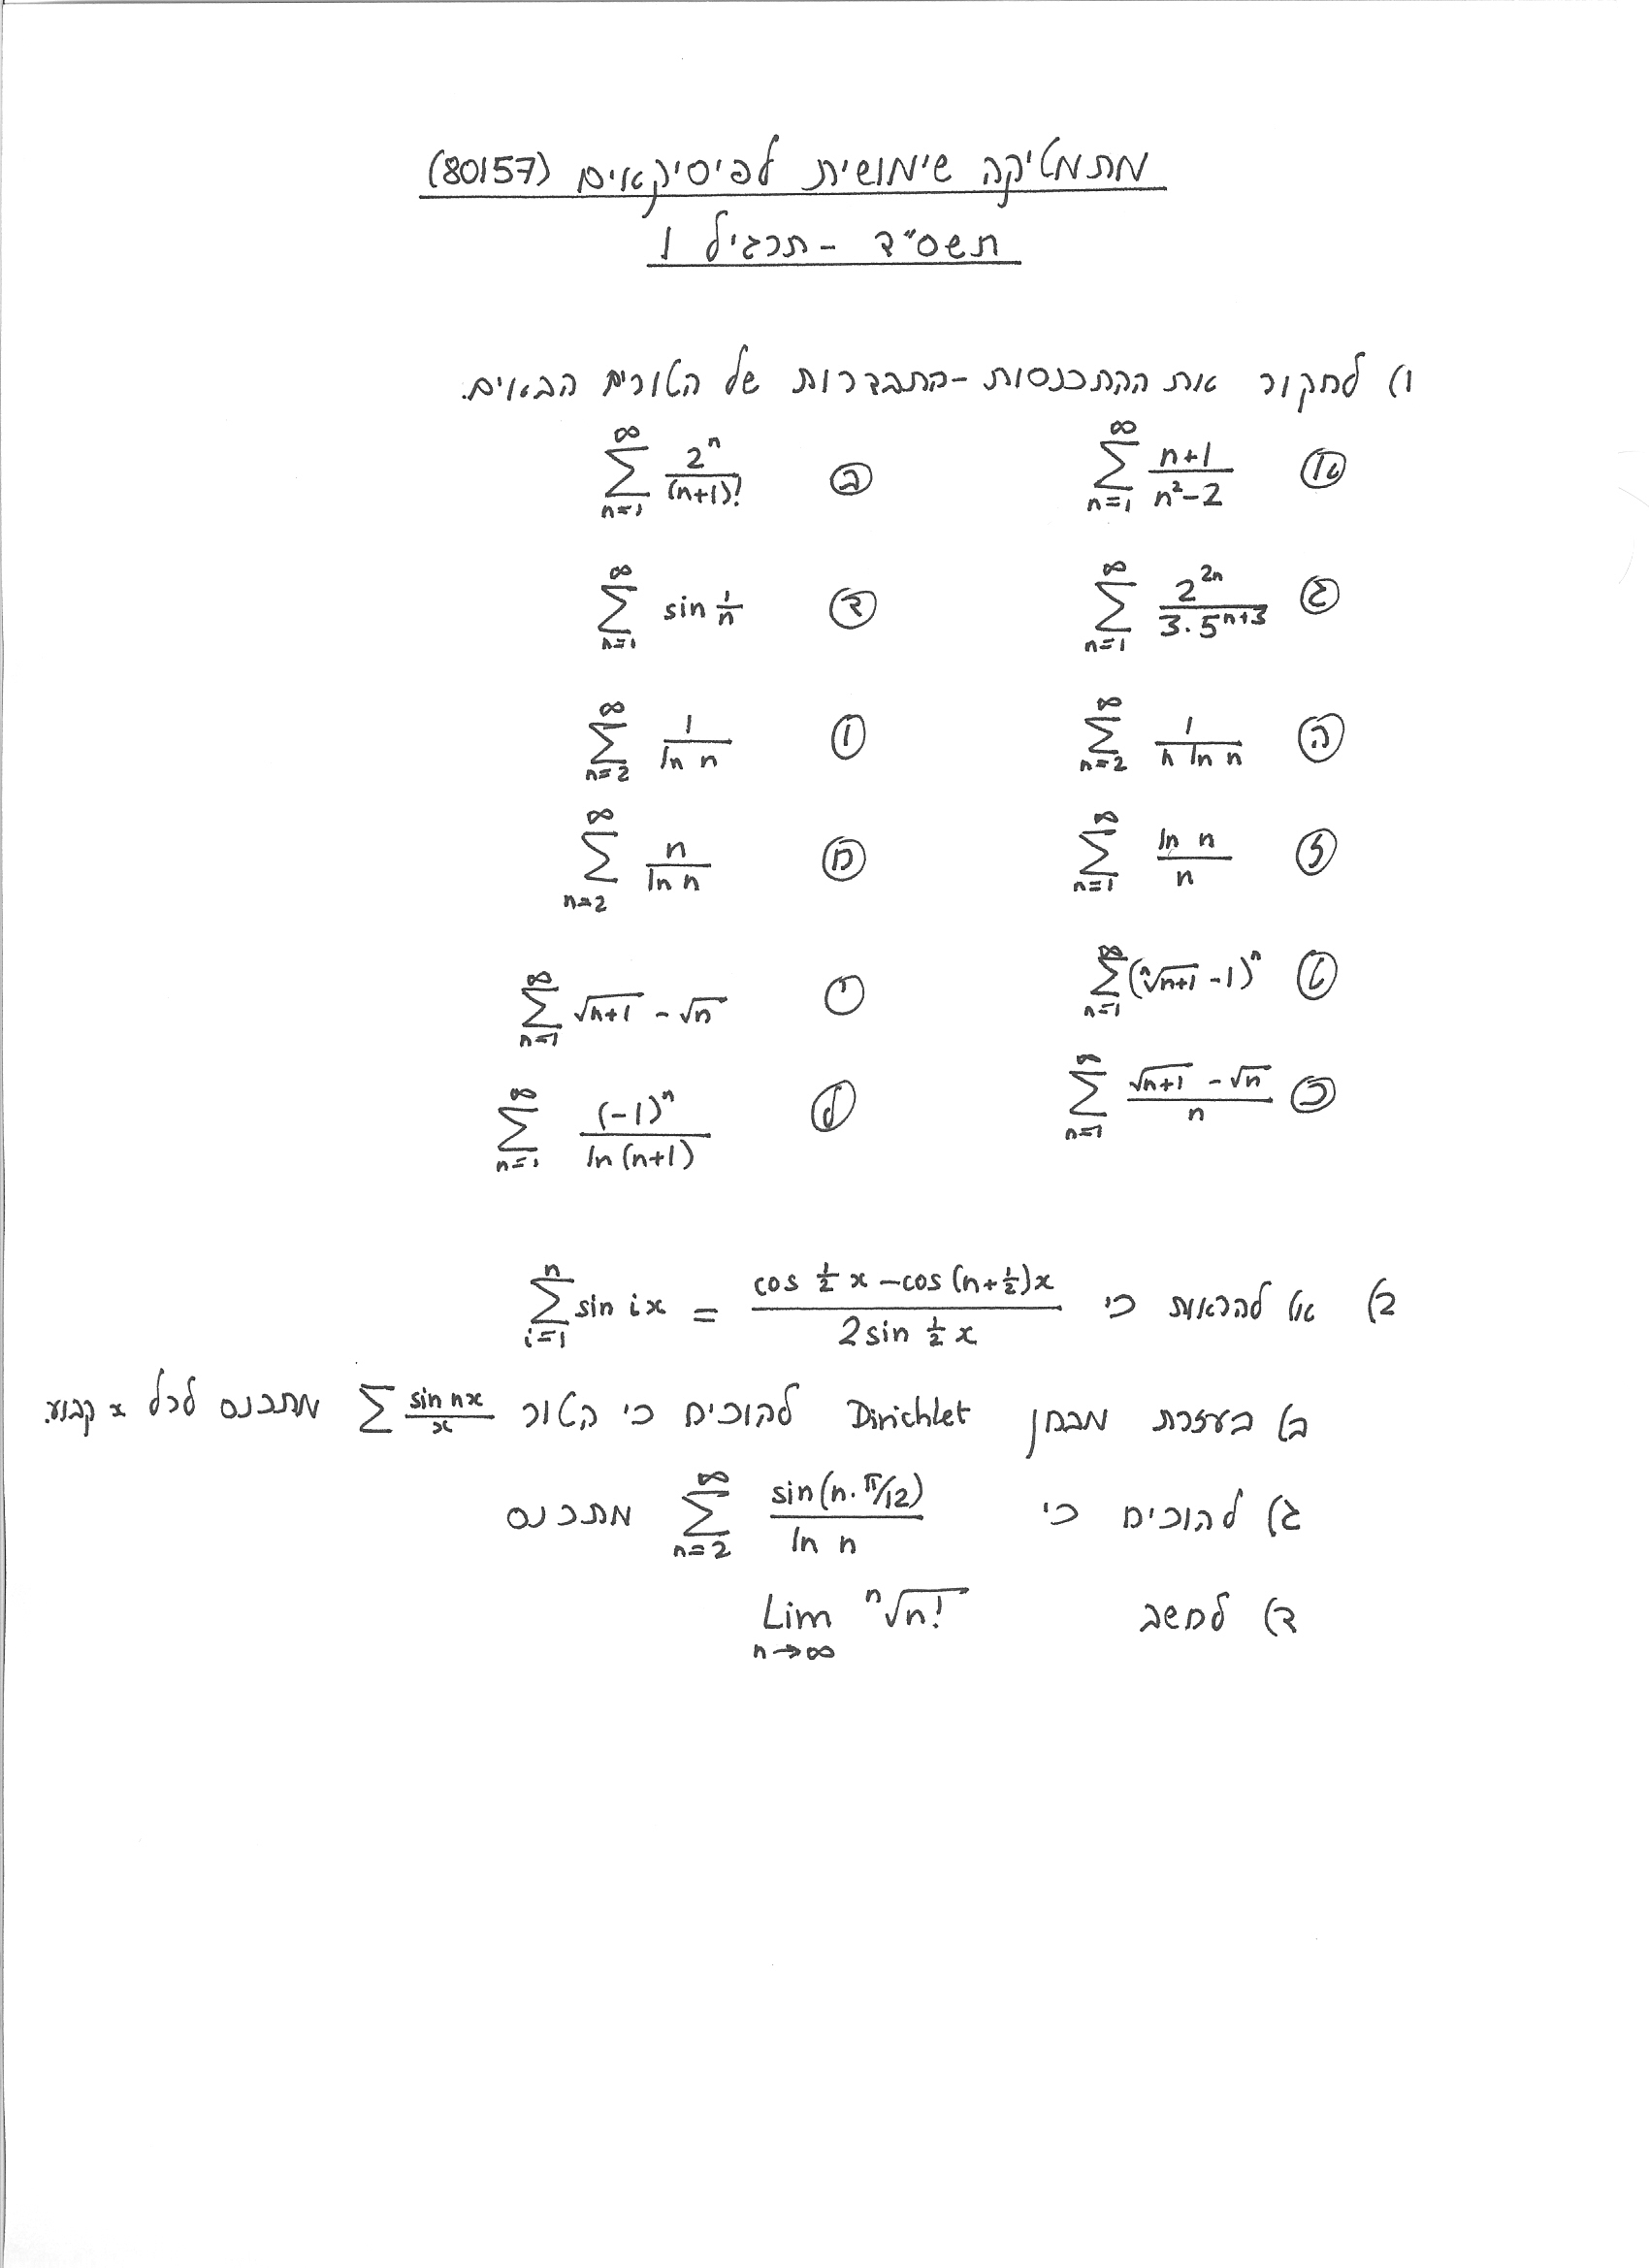 מתמטיקה שימושית לפיסיקאים (80157)
תשס"ד - תרגיל 1
1) לחקור את ההתכנסות-התבדרות של הטורים הבאים.
א) \sum_{n=1}^{\infty} \frac{n+1}{n^2-2} ב) \sum_{n=1}^{\infty} \frac{2^n}{(n+1)!}
ג) \sum_{n=1}^{\infty} \frac{2^{2n}}{3 \cdot 5^{n+3}} ד) \sum_{n=1}^{\infty} \sin \frac{1}{n}
ה) \sum_{n=2}^{\infty} \frac{1}{n \ln n} ו) \sum_{n=2}^{\infty} \frac{1}{\ln n}
ז) \sum_{n=1}^{\infty} \frac{\ln n}{n} ח) \sum_{n=2}^{\infty} \frac{n}{\ln n}
ט) \sum_{n=1}^{\infty} (\sqrt[n]{n+1} - 1)^n י) \sum_{n=1}^{\infty} \sqrt{n+1} - \sqrt{n}
כ) \sum_{n=1}^{\infty} \frac{\sqrt{n+1} - \sqrt{n}}{n} ל) \sum_{n=1}^{\infty} \frac{(-1)^n}{\ln(n+1)}
2) א) להראות כי \sum_{i=1}^{n} \sin ix = \frac{\cos \frac{1}{2}x - \cos(n+\frac{1}{2})x}{2 \sin \frac{1}{2}x}
ב) בעזרת מבחן Dirichlet להוכיח כי הטור \sum \frac{\sin nx}{x} מתכנס לכל x קבוע.
ג) להוכיח כי \sum_{n=2}^{\infty} \frac{\sin(n \cdot \pi/12)}{\ln n} מתכנס
ד) לחשב Lim_{n \to \infty} \sqrt[n]{n!}